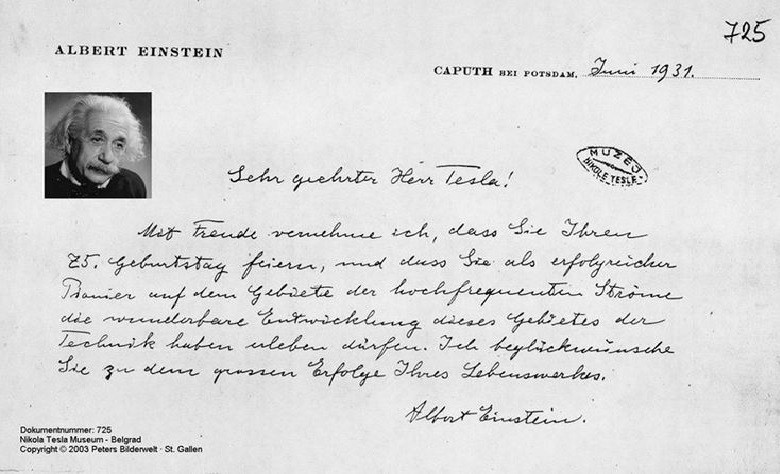 725
ALBERT EINSTEIN
CAPUTH BEI POTSDAM, Juni 1931.
MUZEJ
NIKOLE TESLE
Sehr geehrter Herr Tesla!
Mit Freude vernehme ich, dass Sie Ihren
75. Geburtstag feiern, und dass Sie als erfolgreicher
Pionier auf dem Gebiete der hochfrequenten Ströme
die wunderbare Entwicklung dieses Gebietes der
Technik haben erleben dürfen. Ich beglückwünsche
Sie zu dem grossen Erfolge Ihres Lebenswerkes.
Albert Einstein.
Dokumentnummer: 725
Nikola Tesla Museum - Belgrad
Copyright © 2003 Peters Bilderwelt - St. Gallen